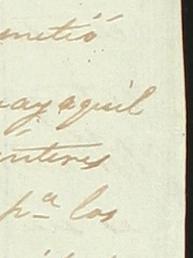 metió
uayaquil
interes
pª los